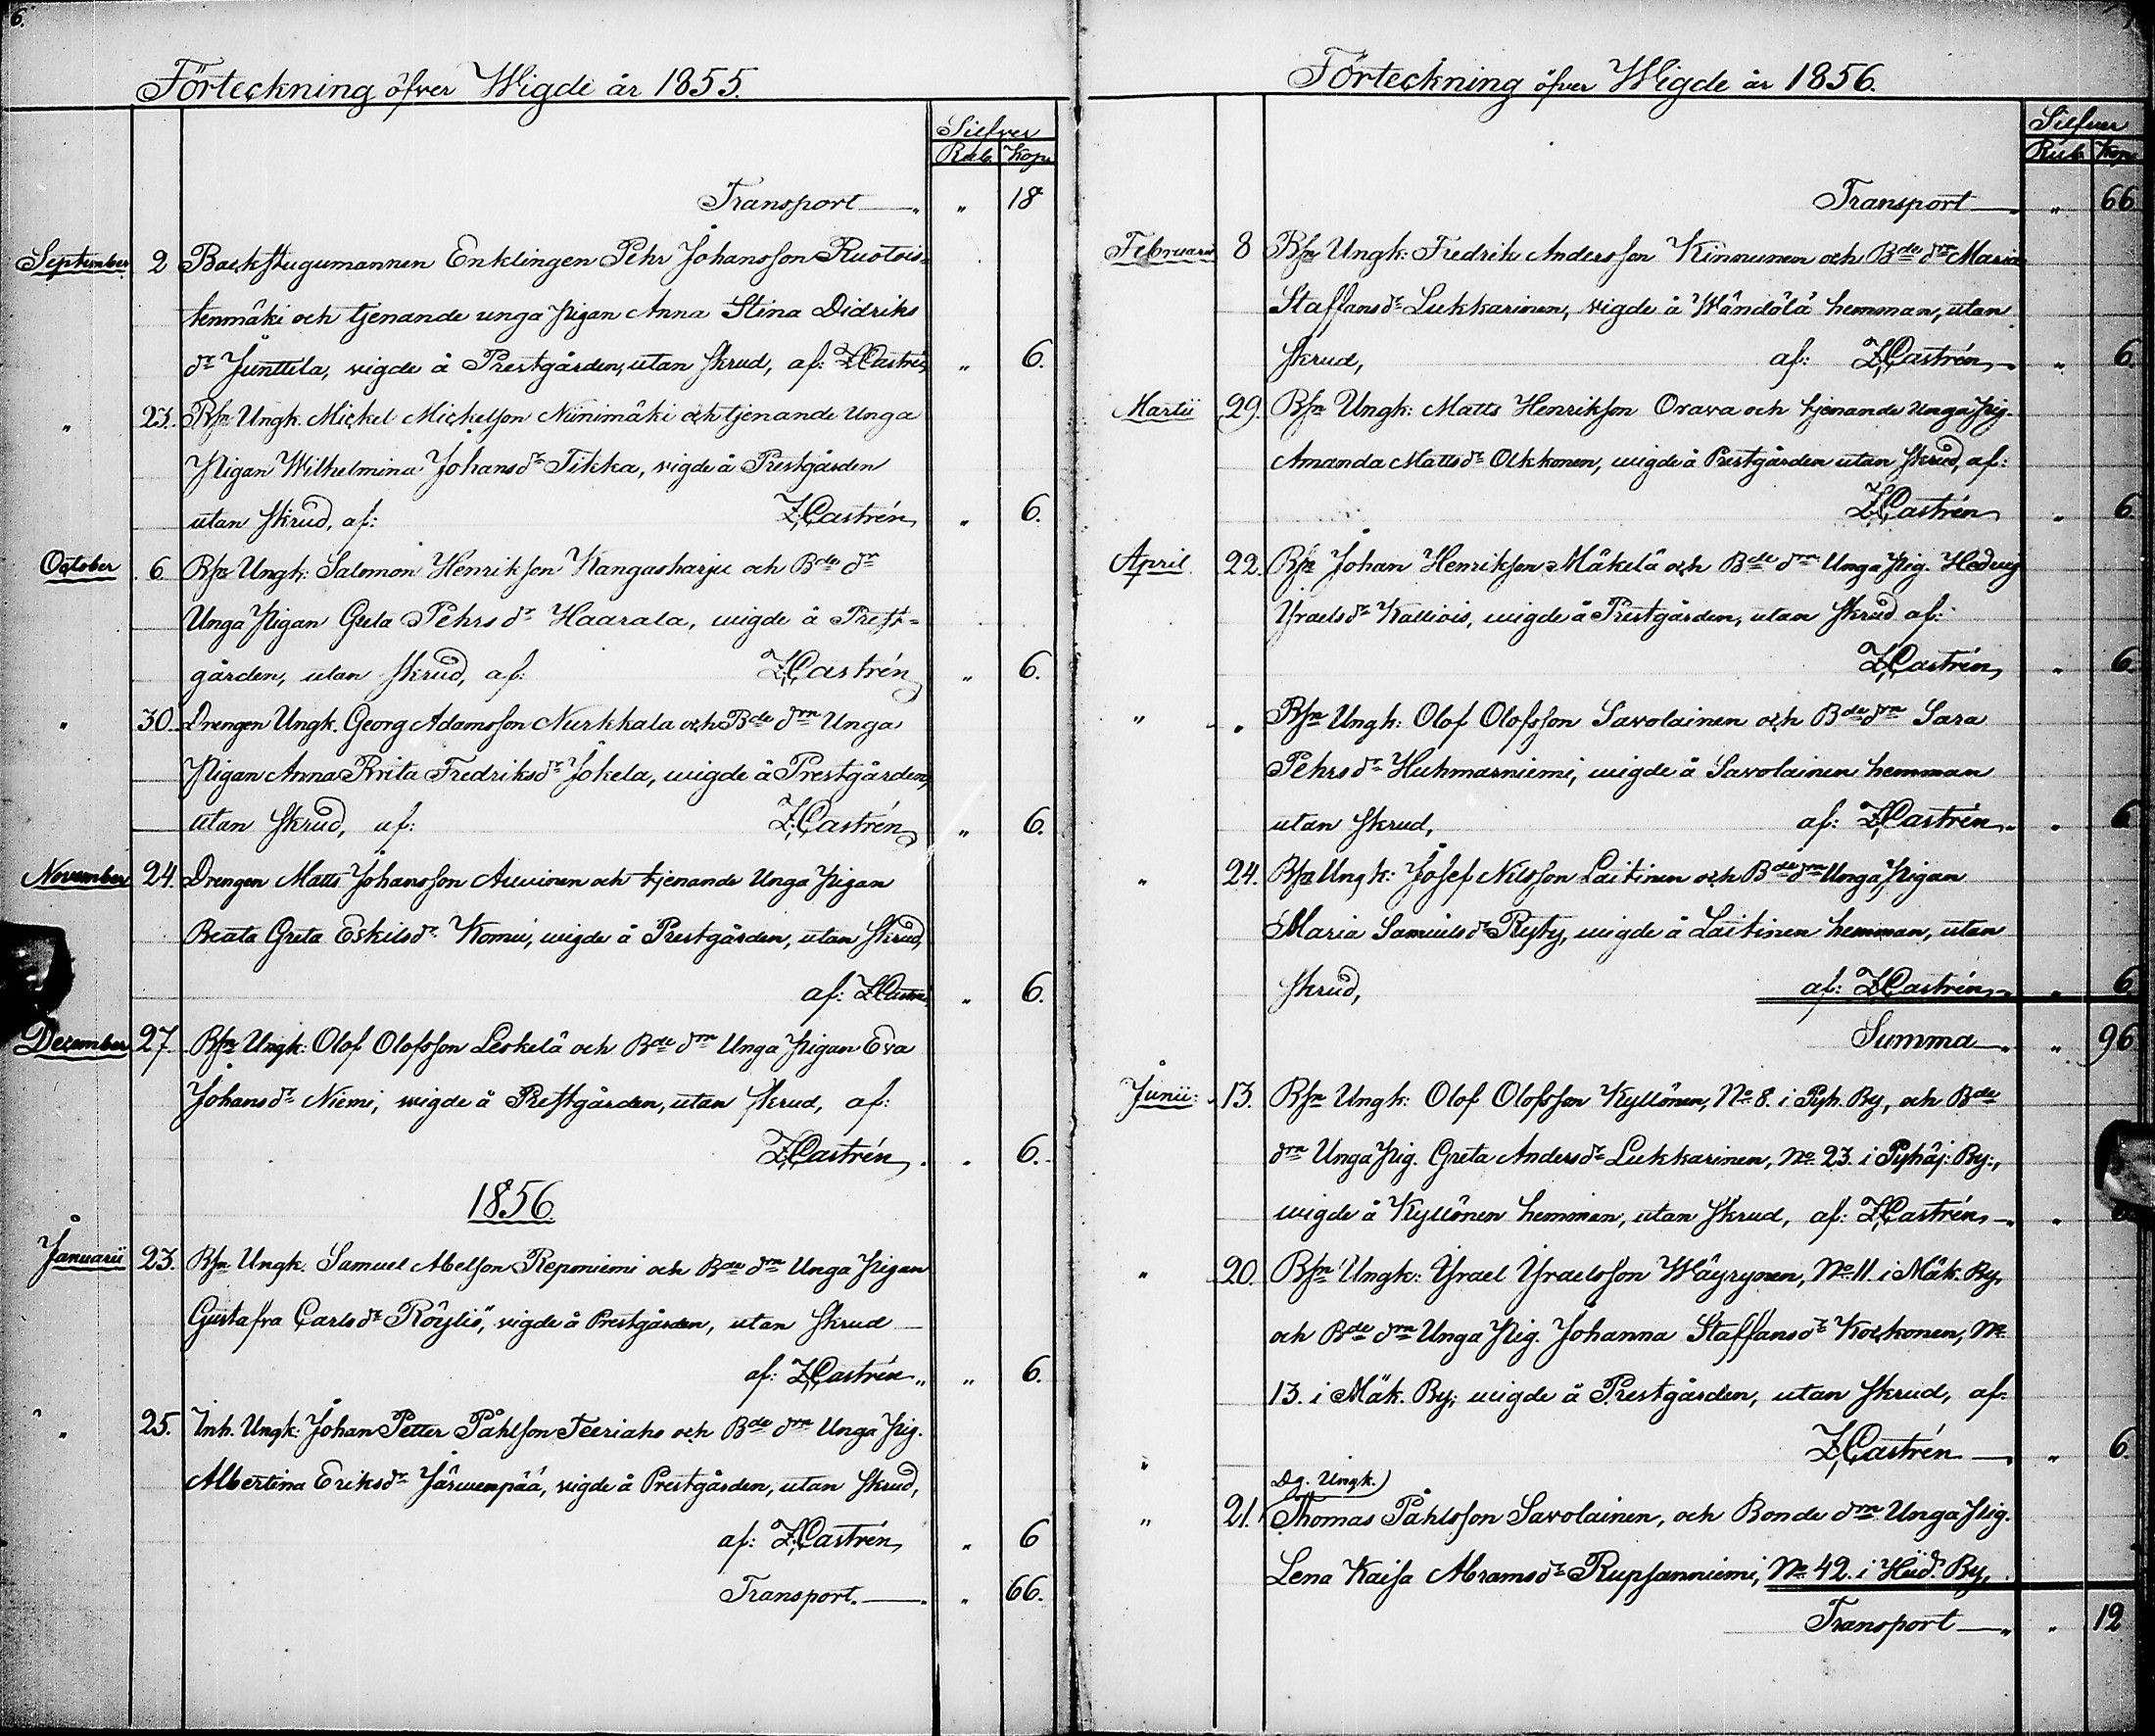 6.
Förteckning öfver Wigde år 1855.
Silfver
Rub. Kop.
Transport —„ „ 18
September 2 Backstugumannen Enklingen Pehr Johansson Ruotois-
tenmäki och tjenande unga pigan Anna Stina Didriks
dr Junttila, vigde å Prestgården, utan skrud, af: Z. Castrén „ 6.
„ 23. Bsn Ungk. Mickel Mickelson Niinimäki och tjenande Unga
Pigan Wilhelmina Johansdr Tikka, vigde å Prestgården
utan skrud, af: Z. Castrén „ 6.
October 6 Bsn Ungk: Salomon Henrikson Kangasharju och Bde dr
Unga Pigan Greta Pehrsdr Haarala, wigde å Prest-
gården, utan skrud, af: Z. Castrén „ 6.
„ 30. Drengen Ungk. Georg Adamsson Nurkkala och Bde drn Unga
Pigan Anna Brita Fredriksdr Jokela, wigde å Prestgården,
utan skrud, af: Z. Castrén „ 6.
November 24. Drengen Matts Johansson Auvinen och tjenande Unga Pigan
Beata Greta Eskilsdr Komu, wigde å Prestgården, utan skrud,
af: Z. Castrén „ 6.
December 27. Bsn Ungk: Olof Olofsson Leskelä och Bde drn Unga Pigan Eva
Johansdr Niemi, wigde å Prestgården, utan skrud, af:
Z. Castrén. „ 6.
1856.
Januarii 23. Bsn Ungk. Samuel Abelson Reponiemi och Bde drn Unga Pigan
Gustafva Carlsdr Röyliö, vigde å Prestgården, utan skrud
af: Z. Castrén „ „ 6.
„ 25. Inh. Ungk: Johan Petter Påhlson Teeriaho och Bde drn Unga Pig.
Albertina Eriksdr Järwenpää, vigde å Prestgården, utan skrud,
af: Z. Castrén „ 6
Transport. — „ 66.
Förteckning öfver Wigde år 1856.
Silfver
Rub. Kop.
Transport —„ „ 66
Februarii 8 Bsn Ungk: Fredrik Andersson Kinnunen och Bde drn Maria
Staffansdr Lukkarinen, vigde å Wändälä hemman, utan
skrud, af: Z. Castrén „ 6.
Martii 29. Bsn Ungk: Matts Henrikson Orava och tjenande unga Pig.
Amanda Mattsdr Olkkonen, wigde å Prestgården utan skrud, af:
Z. Castrén „ 6.
April 22. Bsn Johan Henrikson Mäkelä och Bde drn Unga Pig. Hedvig
Israelsdr Kalliois, wigde å Prestgården, utan skrud af:
Z. Castrén „ 6.
„ „ Bsn Ungk: Olof Olofsson Savolainen och Bde drn Sara
Pehrsdr Huhmarniemi, wigde å Savolainen hemman
utan skrud, af: Z. Castrén „ 6
„ 24. Bsn Ungk: Josef Nilsson Laitinen och Bde drn Unga Pigan
Maria Samuelsdr Rysty, wigde å Laitinen hemman, utan
skrud, af: Z. Castrén „ 6
Summa —„ „ 96
Junii: 13. Bsn Ungk: Olof Olofsson Kyllönen, No 8. i Pyh. By, och Bde
drn Unga Pig. Greta Andersdr Lukkarinen, No 23. i Pyhäj: By:,
wigde å Kyllönen hemman, utan skrud, af: Z. Castrén — „
„ 20. Bsn Ungk: Israel Israelsson Wäyrynen, No 11. i Mäk. By,
och Bde drn Unga Pig. Johanna Staffansdr Kockonen, No
13. i Mäk. By; wigde å Prestgården, utan skrud, af:
„ Z. Castrén — „ 6.
Dg. Ungk.)
„ 21. Thomas Påhlsson Savolainen, och Bonde drn Unga Pig.
Lena Kaisa Abramsdr Rupsanniemi, No 42. i Hiid. By,
Transport —„ „ 12